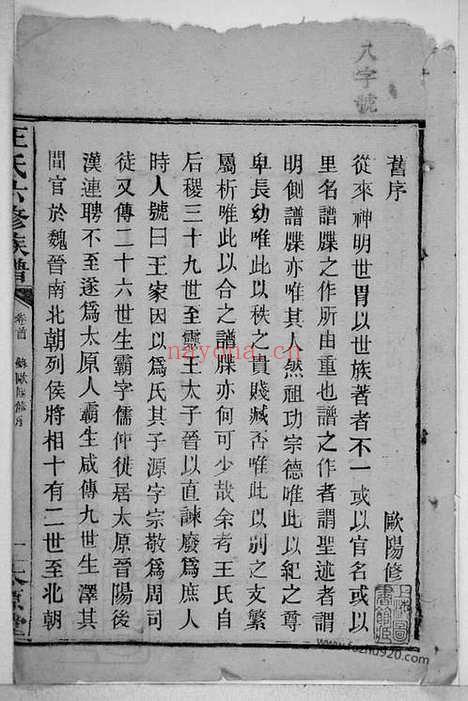 八字號
舊序
歐陽修
從來神明世胄以世族著者不一或以官名或以
里名譜牒之作所由重也譜之作者謂聖述者謂
明側譜牒亦唯其人然祖功宗德唯此以紀之尊
卑長幼唯此以秩之貴賤臧否唯此以別之支繁
屬析唯此以合之譜牒亦何可少哉余考王氏自
后稷三十九世至靈王太子晉以直諫廢爲庶人
時人號曰王家因以爲氏其子源字宗敬爲周司
徒又傳二十六世生霸字儒仲徙居太原晉陽後
漢連聘不至遂爲太原人霸生咸傳九世生澤其
間官於魏晉南北朝列侯將相十有二世至北朝
王氏六修族譜
卷首
歐陽修序
一
太原堂
上海圖
書館藏
nayona.cn
www.fozhu920.com